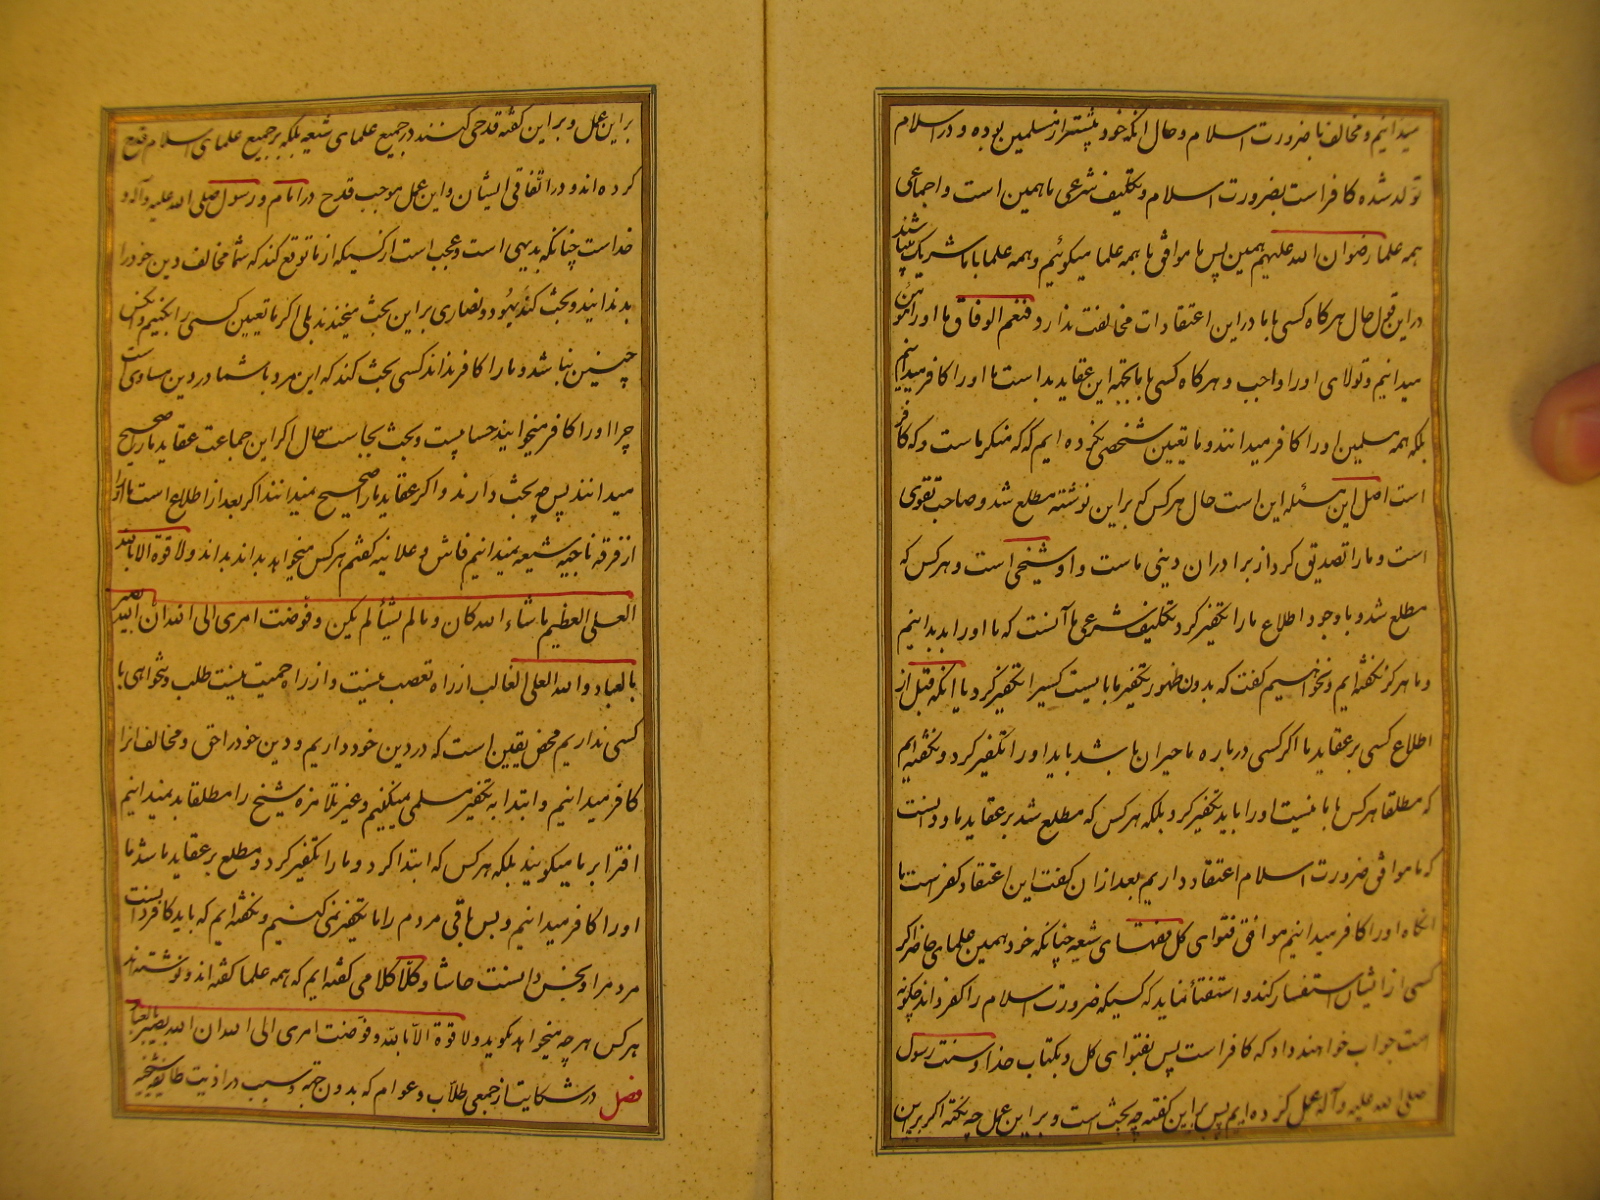 میدانیم و مخالف با ضرورت اسلام و حال آنکه خود پیشتر از مسلمین بوده و در اسلام
تولد شده کافر است بضرورت اسلام و تکلیف شرعی ما همین است و اجماعی
همه علما رضوان الله علیهم همین پس ما موافق با همه علما میگوئیم و همه علما با ما شریک میباشند
در این قول حال هرگاه کسی با ما در این اعتقادات مخالفت ندارد فنعم الوفاق ما او را مؤمن
میدانیم و تولای او را واجب و هرگاه کسی با ما بجهة این عقاید بد است ما او را کافر میدانیم
بلکه همه مسلمین او را کافر میدانند و ما تعیین شخصی نکرده ایم که که منکر ماست و که کافر
است اصل این مسئله این است حال هر کس که براین نوشته مطلع شد و صاحب تقوی
است و ما را تصدیق کرد از برادران دینی ماست و او شیخی است و هر کس که
مطلع شد و با وجود اطلاع ما را تکفیر کرد تکلیف شرعی ما آنست که ما او را بد بدانیم
و ما هرگز نگفته ایم و نخواهیم گفت که بدون ظهور تکفیر ما بایست کسیرا تکفیر کرد یا آنکه قبل از
اطلاع کسی بر عقاید ما اگر کسی درباره ما حیران باشد باید او را تکفیر کرد و نگفته ایم
که مطلقا هر کس با ما نیست او را باید تکفیر کرد بلکه هر کس که مطلع شد بر عقاید ما و دانست
که ما موافق ضرورت اسلام اعتقاد داریم بعد از آن گفت این اعتقاد کفر است ما
آنگاه او را کافر میدانیم موافق فتوای کل فقهای شیعه چنانکه خود همین علمای حاضر اگر
کسی از ایشان استفسار کند و استفتا نماید که کسیکه ضرورت اسلام را کفر داند چگونه
است جواب خواهند داد که کافر است پس بفتوای کل و بکتاب خدا و سنت رسول
صلی الله علیه و آله عمل کرده ایم پس براین گفته چه بحث است و براین عمل چه نکته اگر براین
براین عمل و براین گفته قدحی کنند در جمیع علمای شیعه بلکه بر جمیع علمای اسلام قدح
کرده اند و در اتفاقی ایشان و این عمل موجب قدح در امام و رسول صلی الله علیه و آله و
خداست چنانکه بدیهی است و عجب است از کسیکه از ما توقع کند که شما مخالف دین خود را
بد ندانید و بحث کند یهود و نصاری براین بحث میخندند بلی اگر ما تعیین کسی را بکنیم و آنکس
چنین نباشد و ما را کافر نداند کسی بحث کند که این مرد با شما در دین مساوی است
چرا او را کافر میخوانید حسابیست و بحث بجاست حال اگر این جماعت عقاید ما را صحیح
میدانند پس چه بحث دارند و اگر عقاید ما را صحیح نمیدانند اگر بعد از اطلاع است ما او را
از فرقه ناجیه شیعه نمیدانیم فاش و علانیه گفتم هر کس میخواهد بداند بداند و لا قوة الا بالله
العلی العظیم ما شاء الله کان و ما لم یشأ لم یکن و فوضت امری الی الله ان الله بصیر
بالعباد و الله العلی الغالب از راه تعصب نیست و از راه حمیت نیست طلب و نخواهی با
کسی نداریم محض یقین است که در دین خود داریم و دین خود را حق و مخالف آنرا
کافر میدانیم و ابتدا به تکفیر مسلمی نمیکنیم و غیر تلامذه شیخ را مطلقا بد نمیدانیم
افترا بر ما میگویند بلکه هر کس که ابتدا کرد و ما را تکفیر کرد و مطلع بر عقاید ما شد ما
او را کافر میدانیم و بس باقی مردم را ما تکفیر نمی کنیم و نگفته ایم که باید کافر دانست
مردم را و نجس دانست حاشا و کلا کلامی گفته ایم که همه علما گفته اند و نوشته اند
هر کس هر چه میخواهد بگوید و لا قوة الا بالله و فوضت امری الی الله ان الله بصیر بالعباد
فصل در شکایت از جمعی طلاب و عوام که بدون جهة و سبب در اذیت طایفه شیخیه